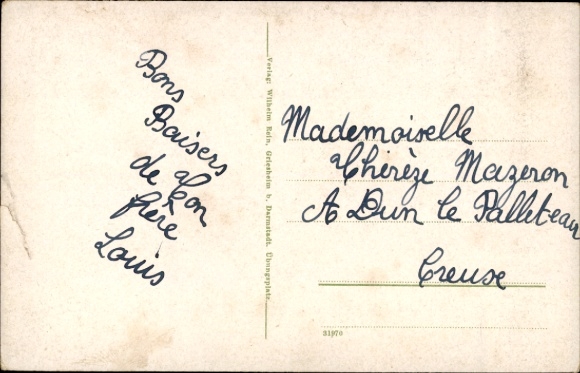 Bons
Baisers
de ton
frère
Louis
Verlag: Wilhelm Rein, Griesheim b. Darmstadt. Übungsplatz.
Mademoiselle
Thérèze Mazeron
A Dun le Palleteau
Creuse
31970